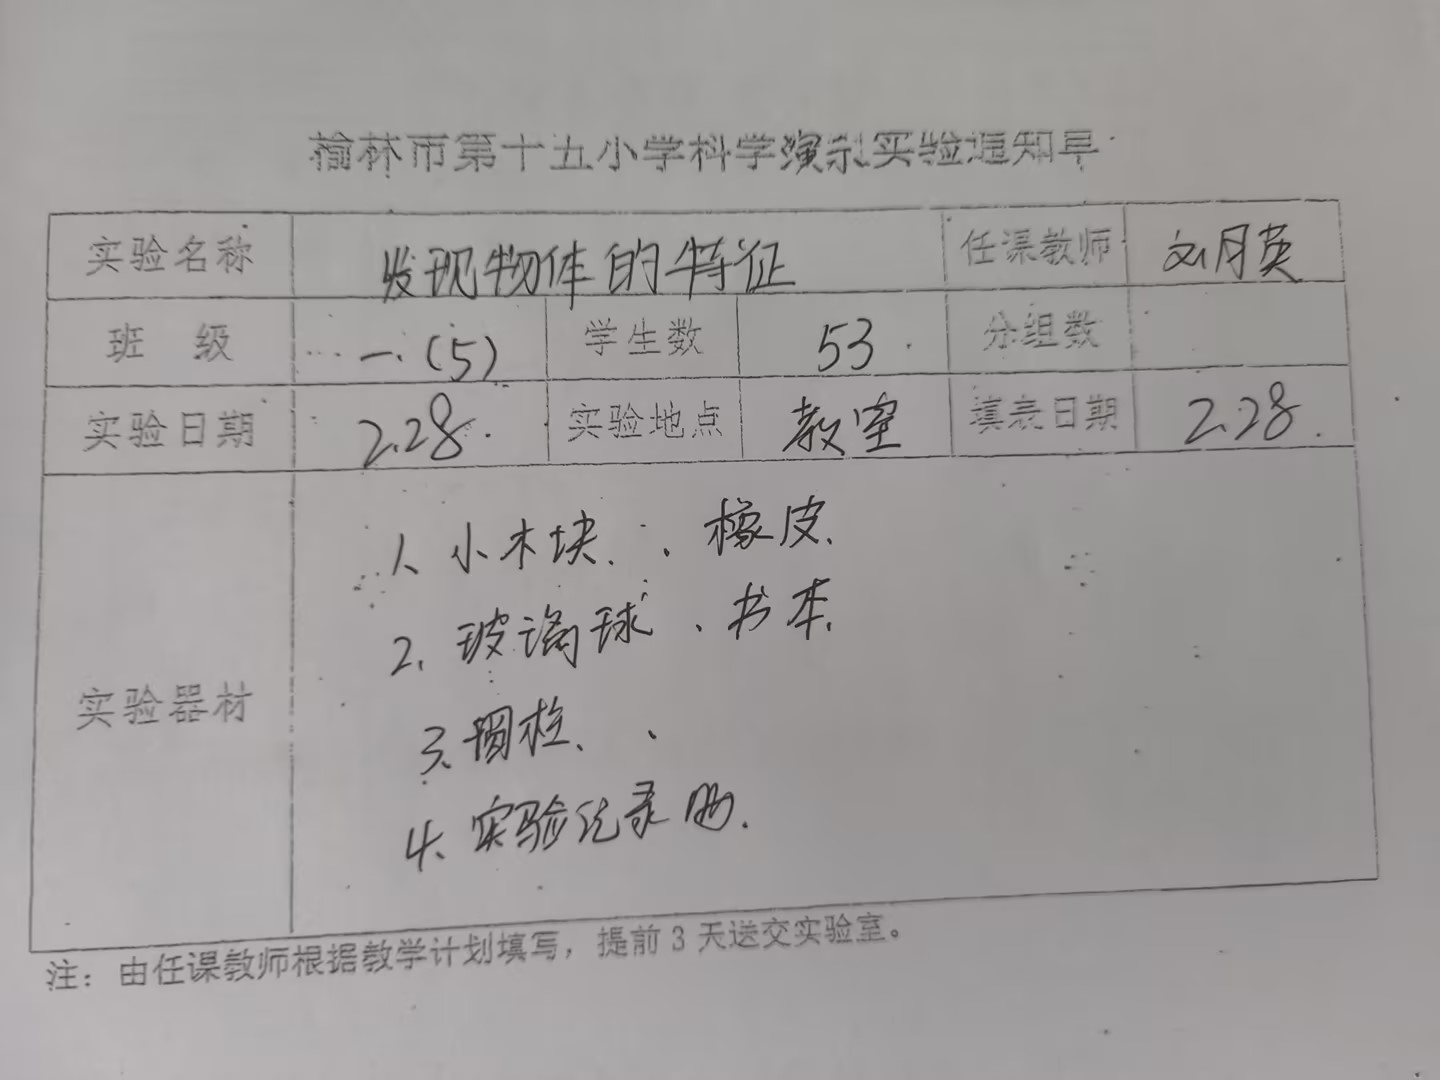 榆林市第十五小学科学演示实验通知单
实验名称 发现物体的特征 任课教师 刘月英
班 级 一.(5) 学生数 53 分组数
实验日期 2.28. 实验地点 教室 填表日期 2.28.
实验器材
1、小木块、橡皮、
2、玻璃球、书本、
3、圆柱、、
4、实验记录
注：由任课教师根据教学计划填写，提前3天送交实验室。